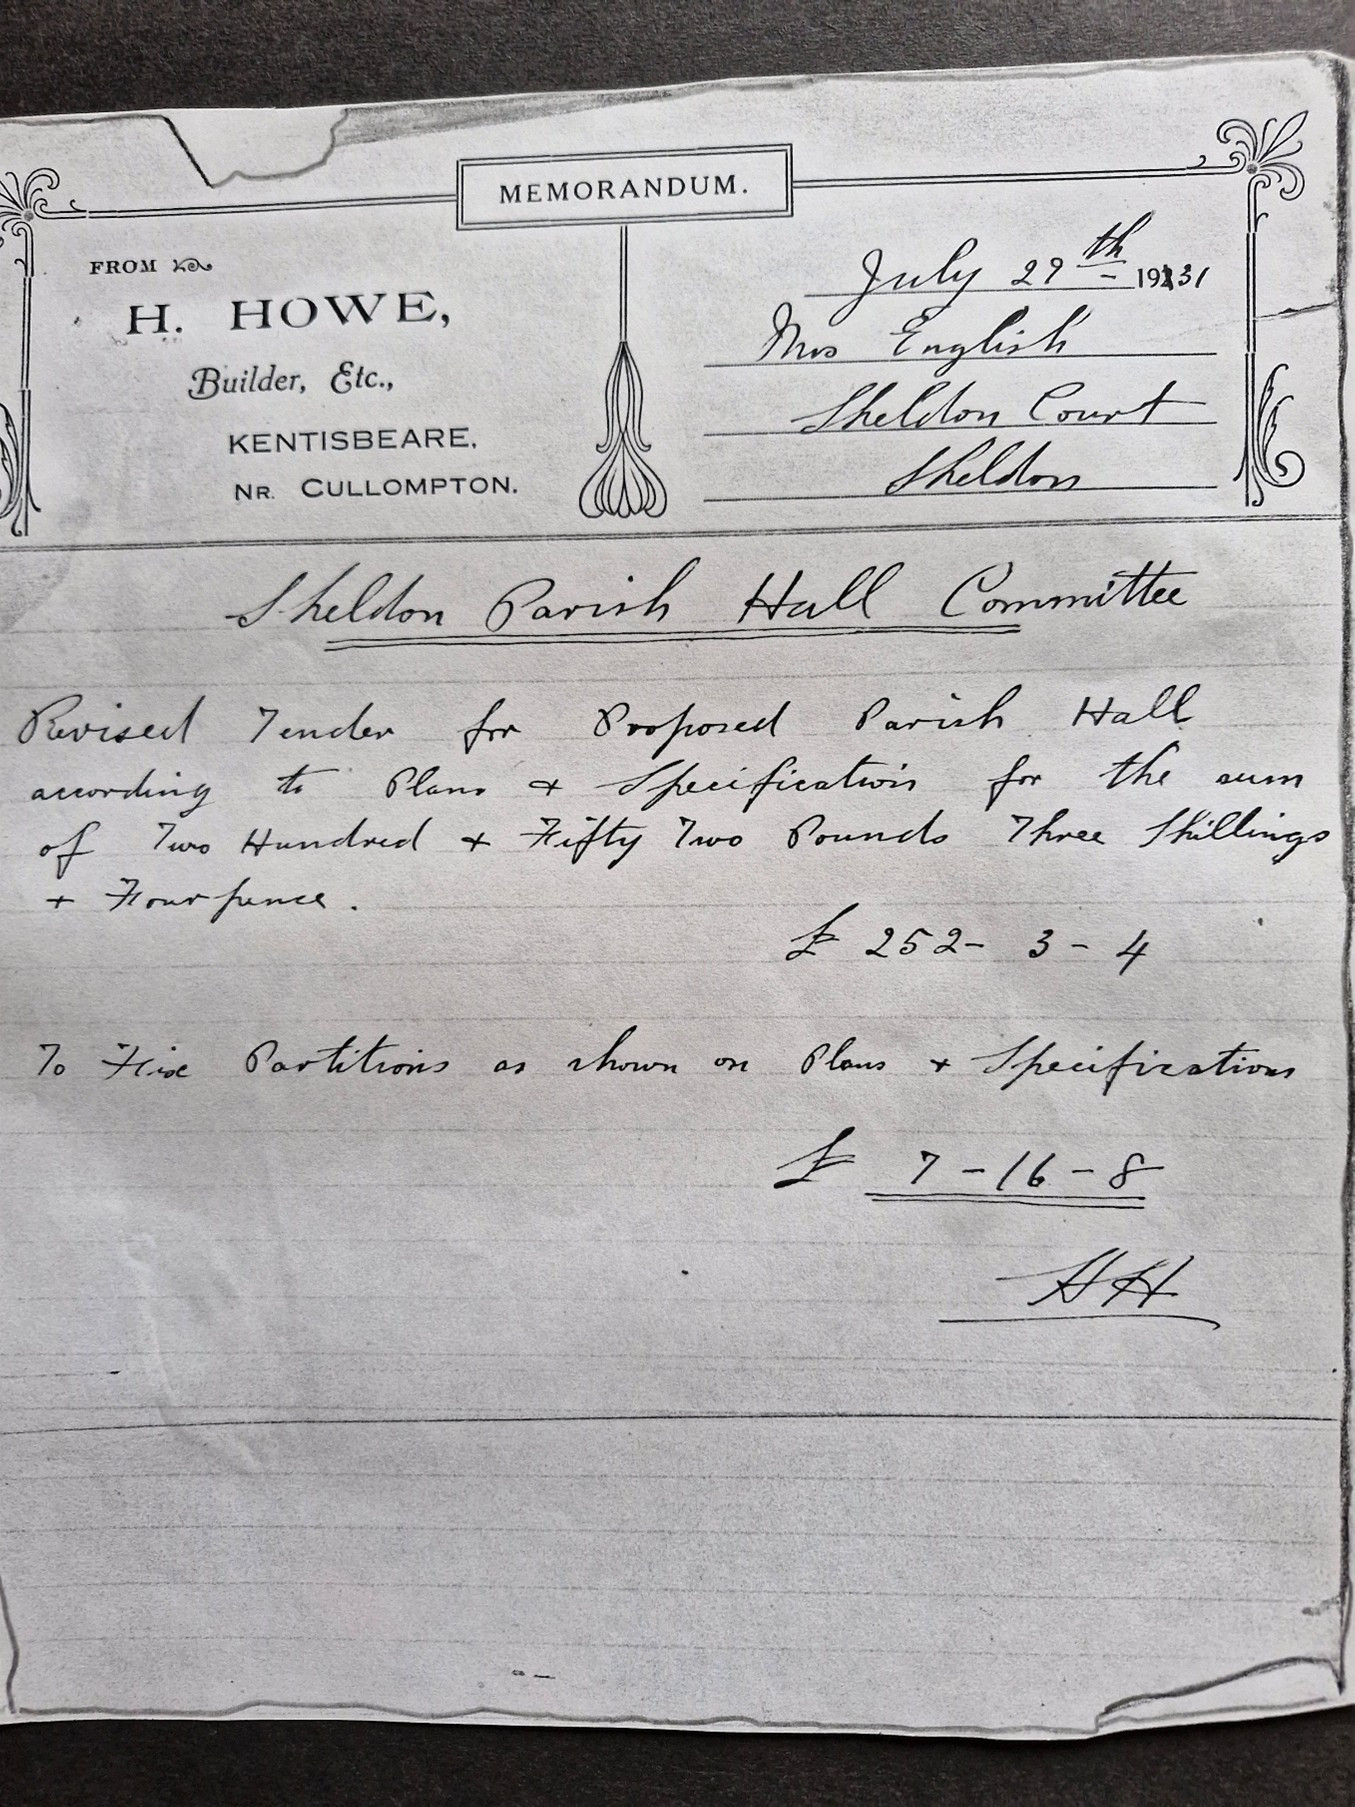 MEMORANDUM.
FROM
H. HOWE,
Builder, Etc.,
KENTISBEARE,
NR. CULLOMPTON.
July 29th 1931
Mrs English
Sheldon Court
Sheldon
Sheldon Parish Hall Committee
Revised Tender for Proposed Parish Hall
according to Plans + Specification for the sum
of Two Hundred + Fifty Two Pounds Three Shillings
+ Fourpence.
£ 252 - 3 - 4
To Fix Partitions as shown on Plans + Specifications
£ 7 - 16 - 8
HH